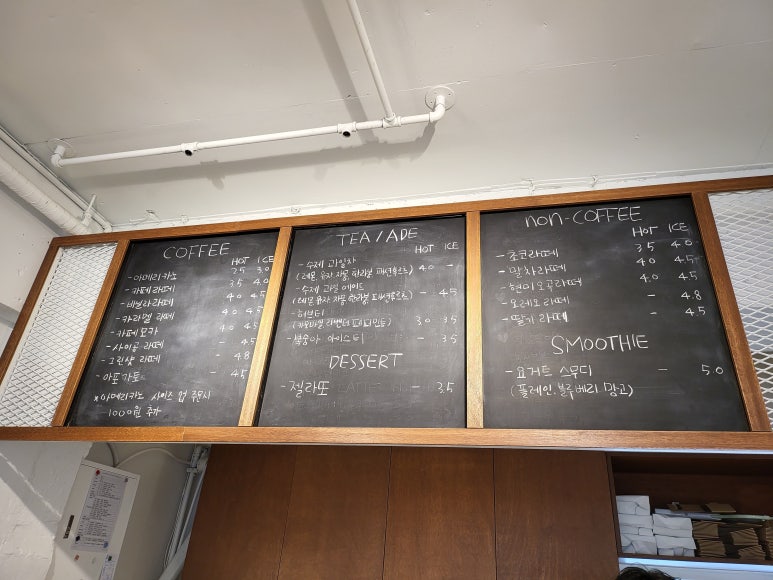 COFFEE
HOT ICE
- 아메리카노 2.5 3.0
- 카페라떼 3.5 4.0
- 바닐라라떼 4.0 4.5
- 카라멜 라떼 4.0 4.5
- 카페모카 4.0 4.5
- 사이공 라떼 - 4.5
- 그린샷 라떼 - 4.8
- 아포가토 - 4.5
* 아메리카노 사이즈 업 주문시
1000원 추가
TEA / ADE
HOT ICE
- 수제 과일차
(레몬 유자 자몽 한라봉 패션후르츠) 4.0 -
- 수제 과일 에이드
(레몬 유자 자몽 한라봉 패션후르츠) - 4.5
- 허브티
(카모마일 라벤더 페퍼민트) 3.0 3.5
- 복숭아 아이스티 - 3.5
DESSERT
- 젤라또 - 3.5
non-COFFEE
HOT ICE
- 초코라떼 3.5 4.0
- 말차라떼 4.0 4.5
- 행미오곡라떼 4.0 4.5
- 오레오라떼 - 4.8
- 딸기라떼 - 4.5
SMOOTHIE
- 요거트 스무디 - 5.0
(플레인.블루베리.망고)